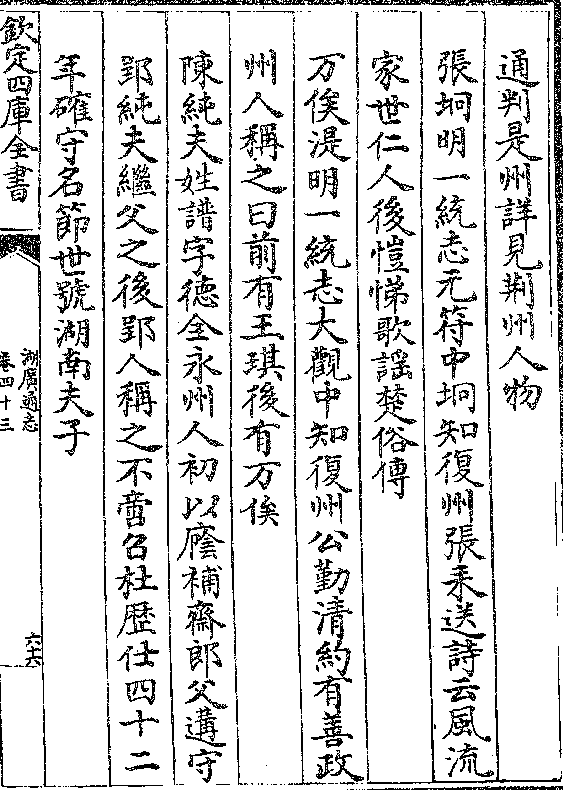 通判是州詳見荆州人物
張垌明一統志元符中垌知復州張耒送詩云風流
家世仁人後愷悌歌謡楚俗傳
万俟湜明一統志大觀中知復州公勤清約有善政
州人稱之曰前有王琪後有万俟
陳純夫姓譜字德全永州人初以廕補齋郎父遘守
郢純夫繼父之後郢人稱之不啻召杜歴仕四十二
年確守名節世號湖南夫子
欽定四庫全書
湖廣通志
卷四十三
六十六